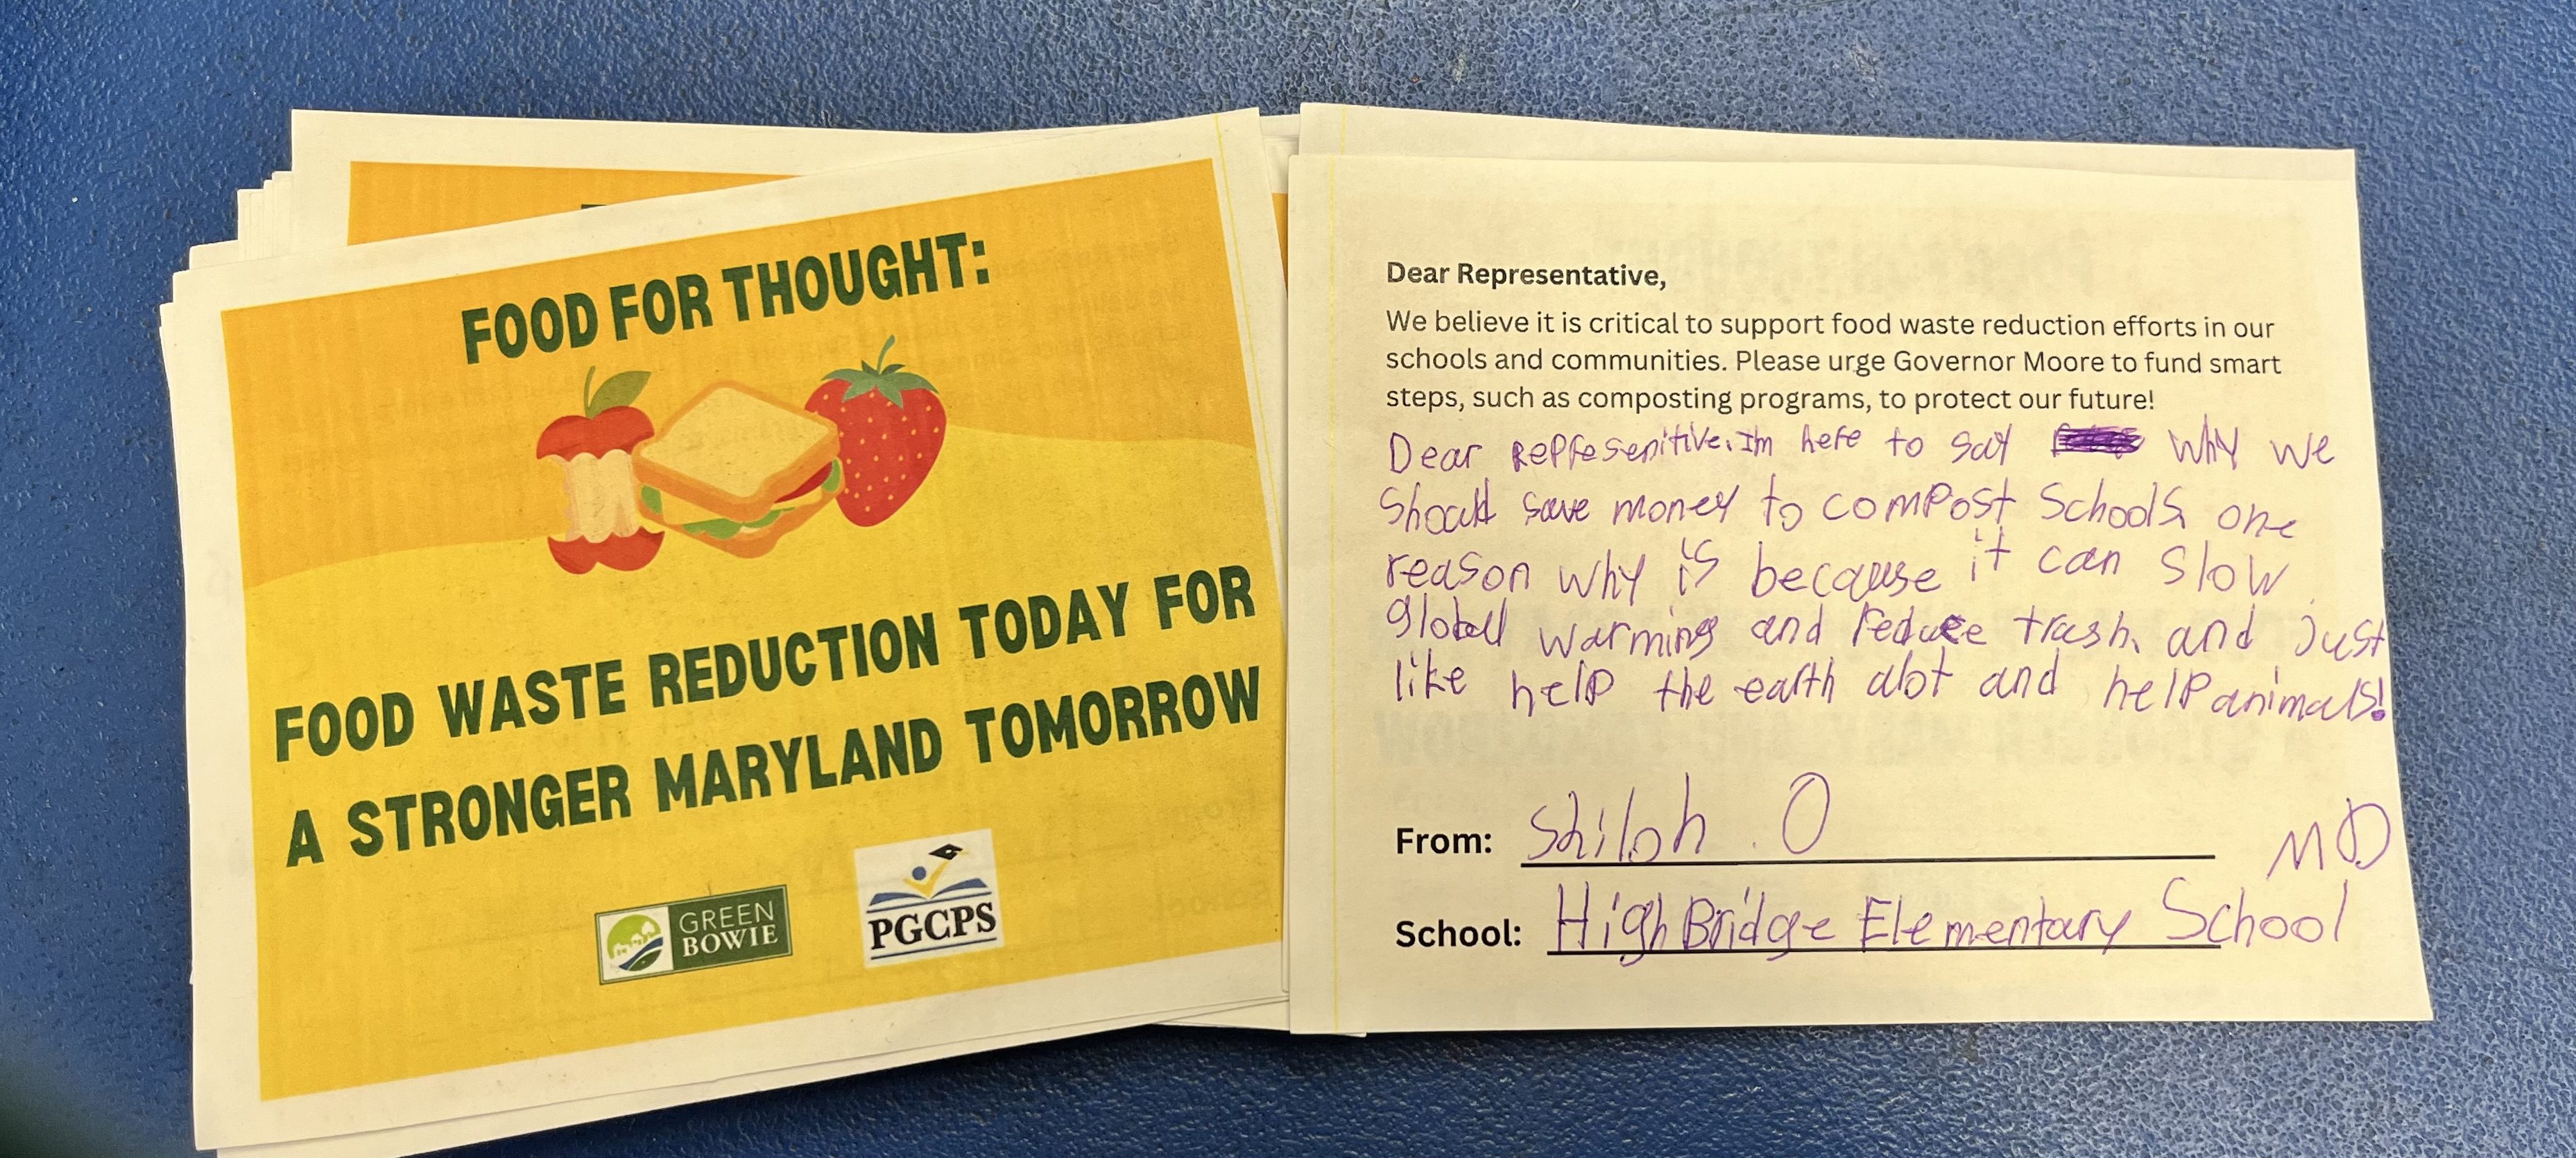 FOOD FOR THOUGHT:
FOOD WASTE REDUCTION TODAY FOR
A STRONGER MARYLAND TOMORROW
GREEN
BOWIE
PGCPS
Dear Representative,
We believe it is critical to support food waste reduction efforts in our
schools and communities. Please urge Governor Moore to fund smart
steps, such as composting programs, to protect our future!
Dear Represenitive. Im here to say why we
should save money to compost Schools. one
reason why is because it can slow
global warming and reduce trash. and Just
like help the earth alot and help animals!
From: Shiloh . O
MD
School: HighBridge Elementary School